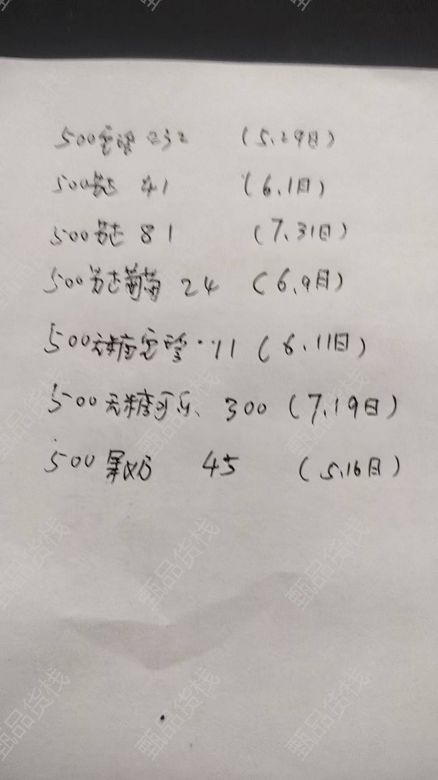 500雪碧 232 (5.29日)
500芬达 41 (6.1日)
500芬达 81 (7.31日)
500芬达葡萄 24 (6.9日)
500无糖雪碧 11 (6.11日)
500无糖可乐 300 (7.19日)
500果奶 45 (5.16日)
甄品货栈